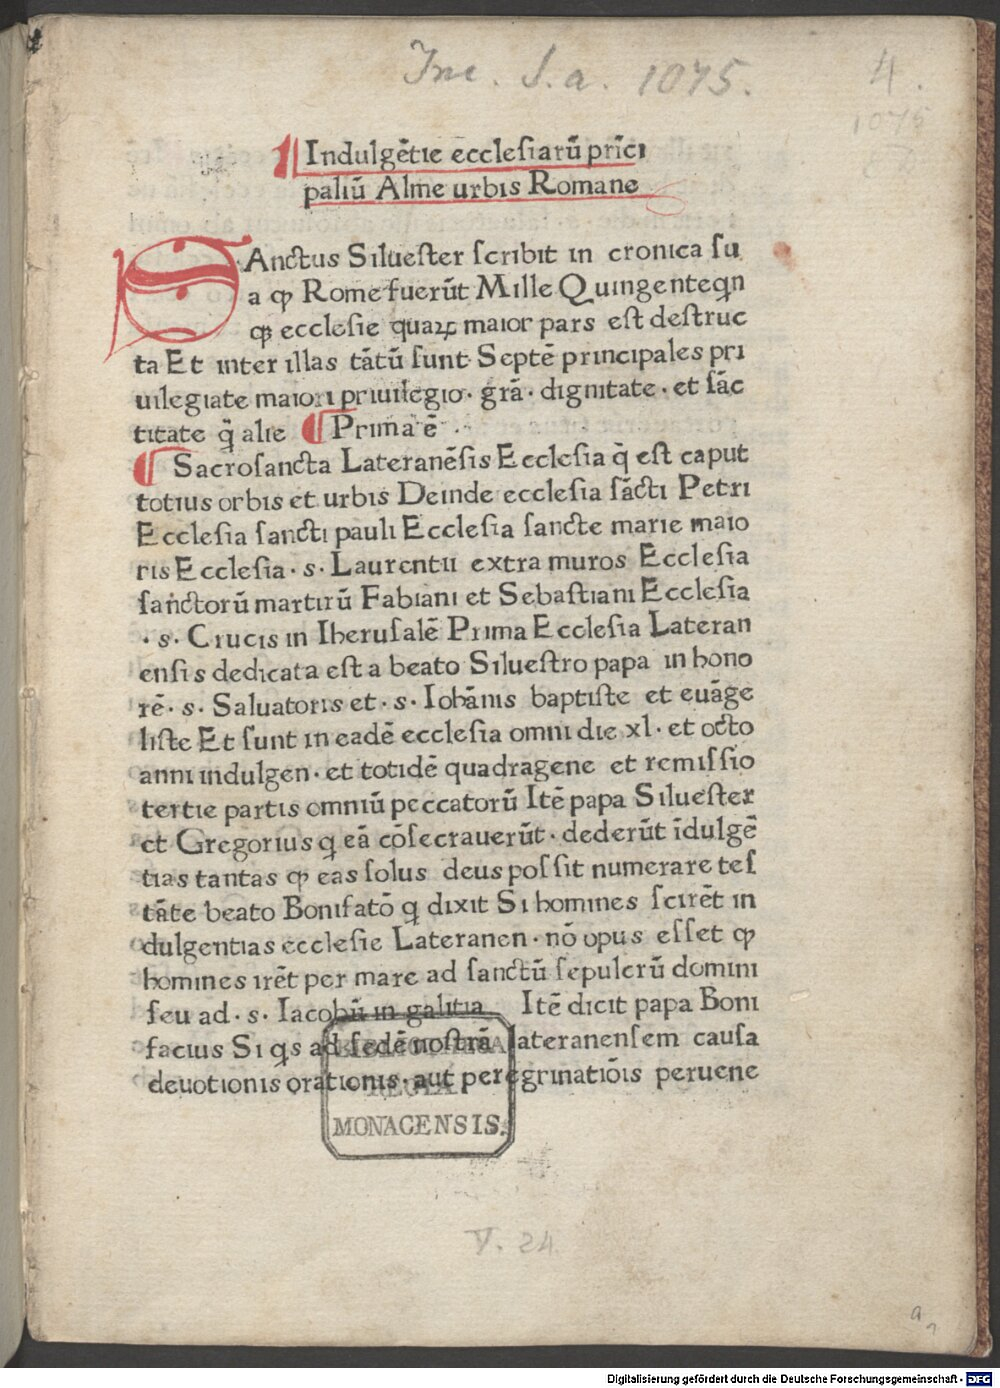 Inc. S. a. 1075.
4.
1075
¶ Indulgētie ecclesiarū prīci
paliū Alme urbis Romane
SAnctus Siluester scribit in cronica su
a ꝙ Rome fuerūt Mille Quingenteqn
ꝙ ecclesie quaꝝ maior pars est destruc
ta Et inter illas tātū sunt Septē principales pri
uilegiate maiori priuilegio· grā· dignitate· et sāc
titate q̄ alie ¶ Prima ē
¶ Sacrosancta Lateranēsis Ecclesia q̄ est caput
totius orbis et urbis Deinde ecclesia sācti Petri
Ecclesia sancti pauli Ecclesia sancte marie maio
ris Ecclesia· s· Laurentii extra muros Ecclesia
sanctorū martirū Fabiani et Sebastiani Ecclesia
· s· Crucis in Iherusalē Prima Ecclesia Lateran
ensis dedicata est a beato Siluestro papa in hono
rē· s· Saluatoris et· s· Iohānis baptiste et euāge
liste Et sunt in eadē ecclesia omni die xl· et octo
anni indulgen· et totidē quadragene et remissio
tertie partis omniū peccatorū Itē papa Siluester
et Gregorius q eā cōsecrauerūt· dederūt īdulgē
tias tantas ꝙ eas solus deus possit numerare tes
tāte beato Bonifatō q dixit Si homines scirēt in
dulgentias ecclesie Lateranen· nō opus esset ꝙ
homines irēt per mare ad sanctū sepulcrū domini
seu ad· s· Iacobū in galitia Itē dicit papa Boni
facius Si qs ad sedē nostrā lateranensem causa
deuotionis orationis· aut peregrinatiōis peruene
REGIA
MONACENSIS.
V. 24
Digitalisierung gefördert durch die Deutsche Forschungsgemeinschaft - DFG